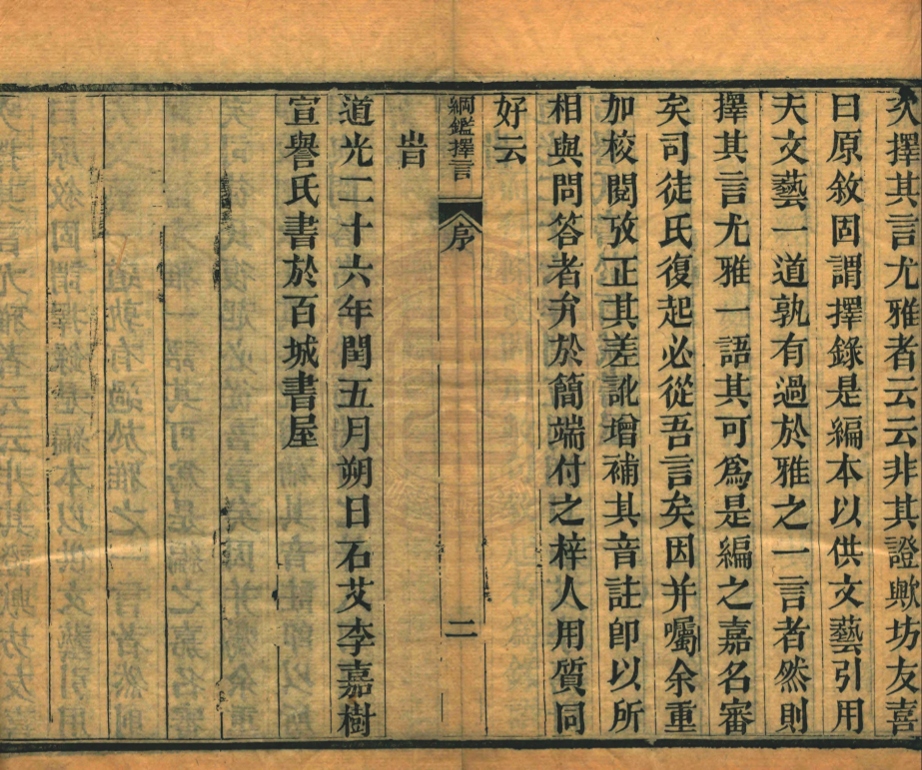 夫擇其言尤雅者云云非其證歟坊友喜
曰原敘固謂擇錄是編本以供文藝引用
夫文藝一道孰有過於雅之一言者然則
擇其言尤雅一語其可爲是編之嘉名審
矣司徒氏復起必從吾言矣因并囑余重
加校閱攷正其差訛增補其音註卽以所
相與問答者弁於簡端付之梓人用質同
好云
綱鑑擇言
序
二
旹
道光二十六年閏五月朔日石艾李嘉樹
宣譽氏書於百城書屋